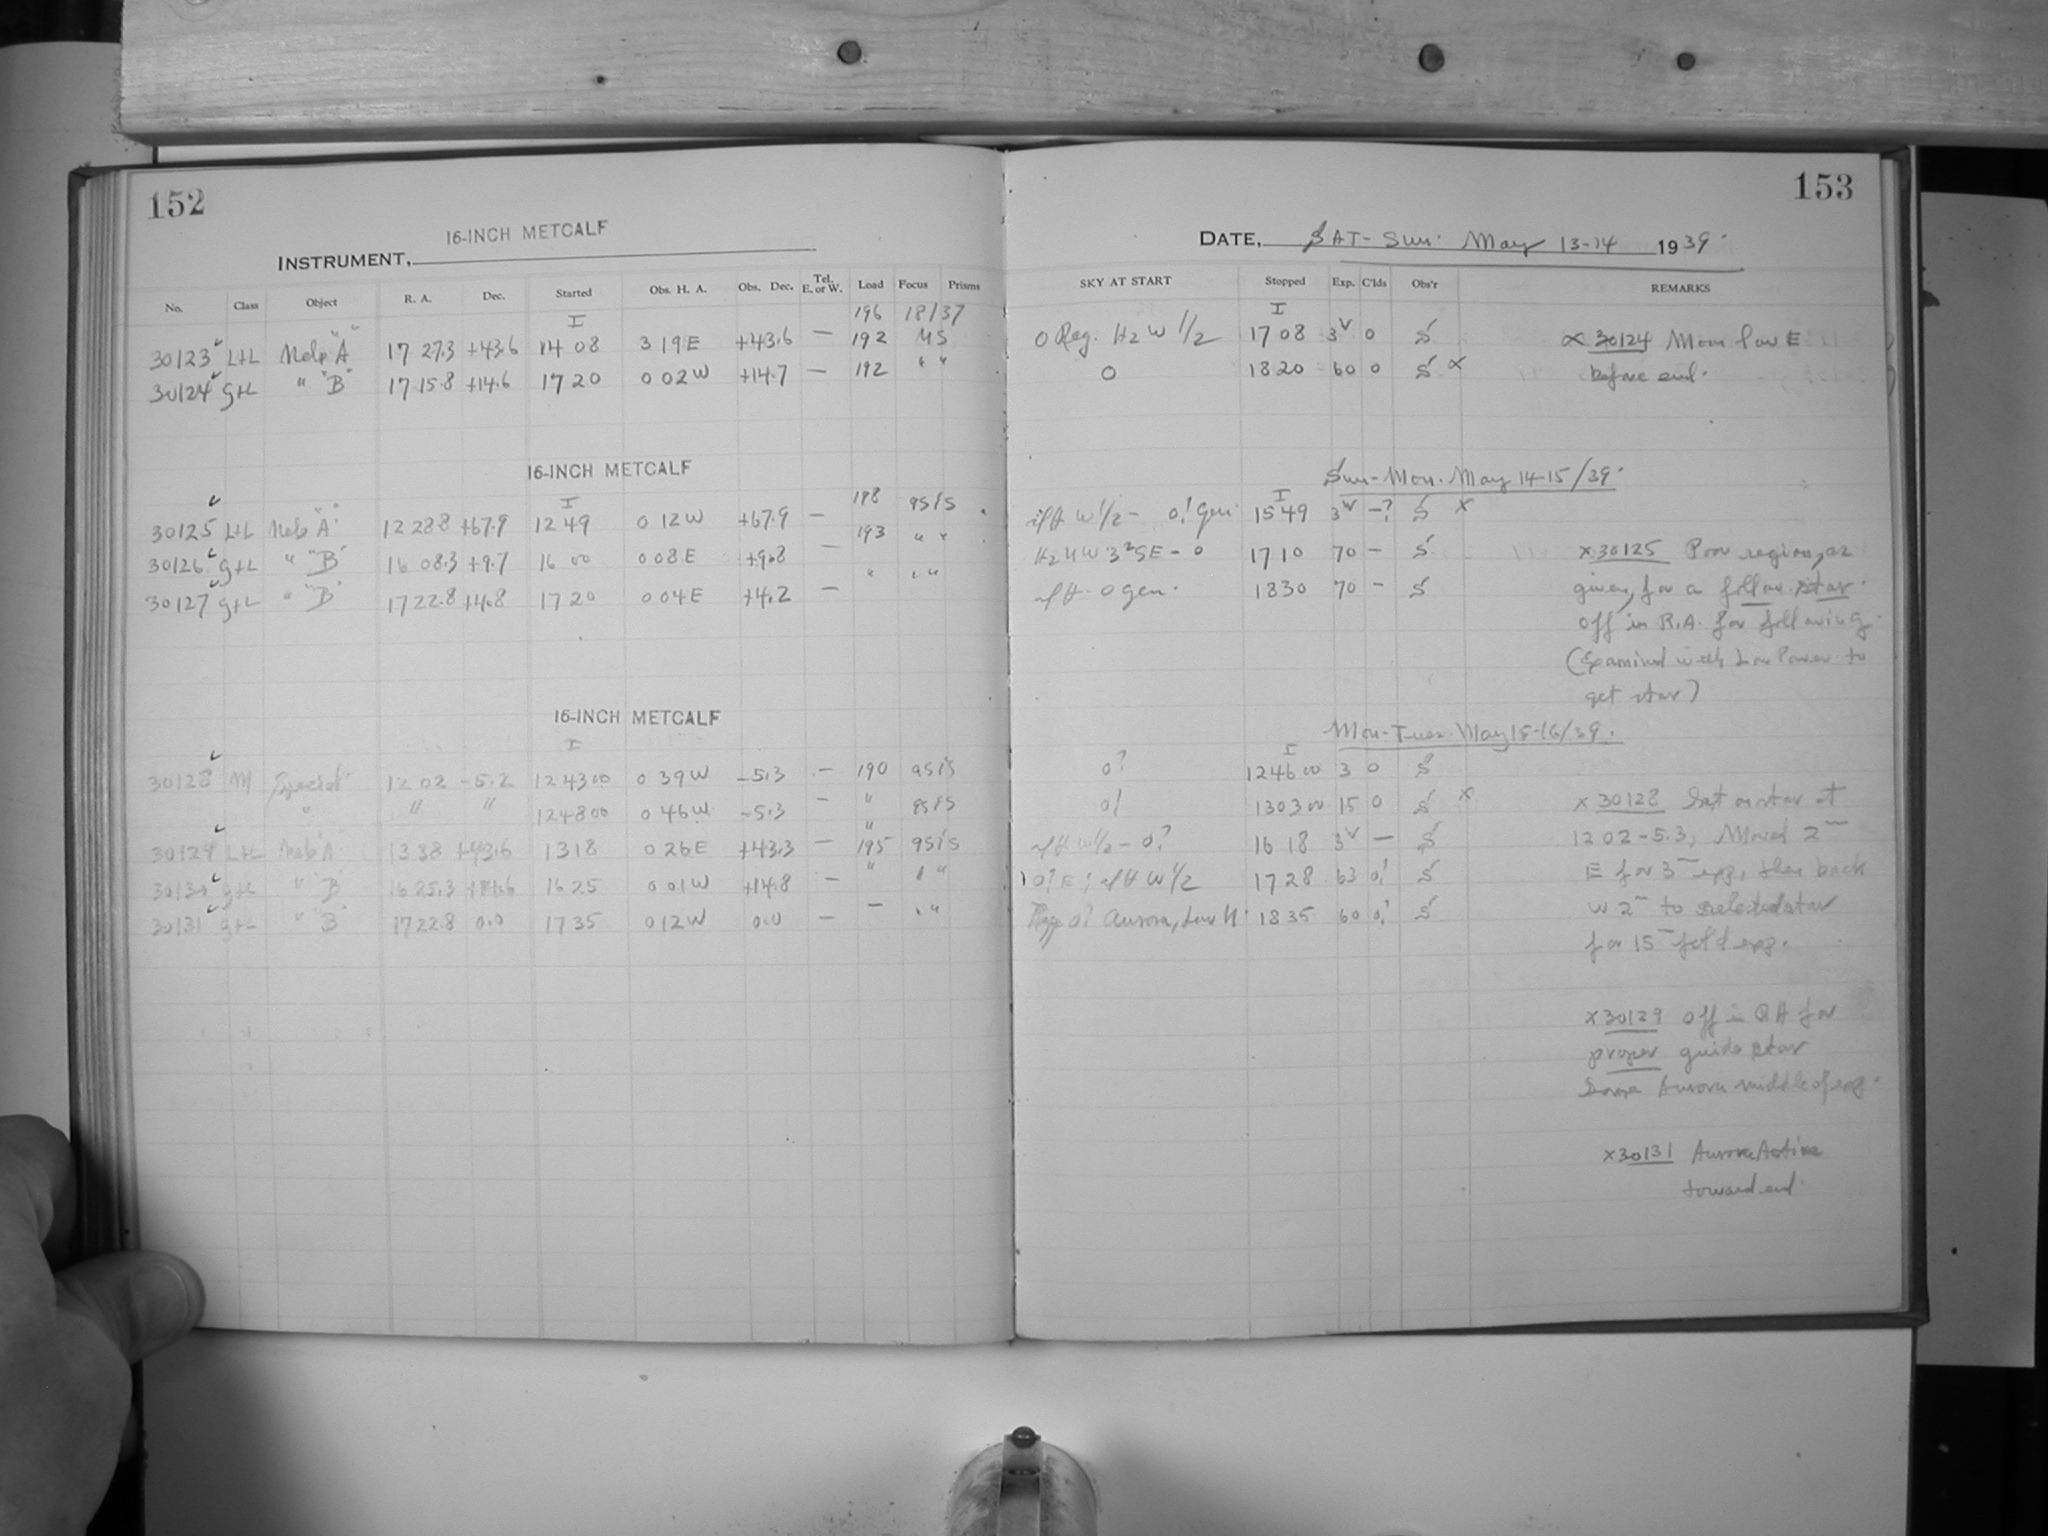 152
16-INCH METCALF
INSTRUMENT,
No. Class Object R. A. Dec. Started Obs. H. A. Obs. Dec. Tel. E. or W. Load Focus Prisms
I 196 18/37
30123 L+L Neb "A" 17 27.3 +43.6 14 08 3 19 E +43.6 — 192
30124 G+L " "B" 17 15.8 +14.6 17 20 0 02 W +14.7 — 192 " "
16-INCH METCALF
I 188
30125 L+L Neb "A" 12 28.8 +67.9 12 49 0 12 W +67.9 — 193 " "
30126 G+L " "B" 16 08.3 +9.7 16 00 0 08 E +9.8 — " " "
30127 G+L " "B" 17 22.8 +4.8 17 20 0 04 E +4.2 —
16-INCH METCALF
I
30128 M Special 12 02 -5.2 12 43 00 0 39 W -5.3 — 190
" " " 12 48 00 0 46 W -5.3 — "
30129 L+L Neb "A" 13 38 +43.6 13 18 0 26 E +43.3 — 195
30130 G+L " "B" 16 25.3 16 25 0 01 W +14.8 — " " "
30131 G+L " "B" 17 22.8 0.0 17 35 0 12 W 0.0 — — " "
153
DATE, SAT-Sun. May 13-14 1939.
SKY AT START Stopped Exp. C'lds Obs'r REMARKS
I
0 Reg. Hz W 1/2 17 08 3V 0 S x 30124 Moon low E
0 18 20 60 0 S x before end.
Sun-Mon. May 14-15/39.
I
W 1/2 - 0! Gen. 15 49 3V -? S x
17 10 70 — S x 30125 Poor region, as
0 gen. 18 30 70 — S given, for a follow. star.
off in R.A. for following.
(Examined with Low Power to
get star)
Mon-Tues. May 15-16/39.
I
0? 12 46 00 3 0 S
0! 13 03 00 15 0 S x x 30128 Set on star at
W 1/2 - 0? 16 18 3V — S 12 02 -5.3, Moved 2m
0? E; W 1/2 17 28 63 0! S E for 3m exp., then back
0? Aurora, Low N. 18 35 60 0? S W 2m to selected star
for 15m field exp.
x 30129 off in RA for
proper guide star
Some Aurora middle of exp.
x 30131 Aurora Active
toward end.